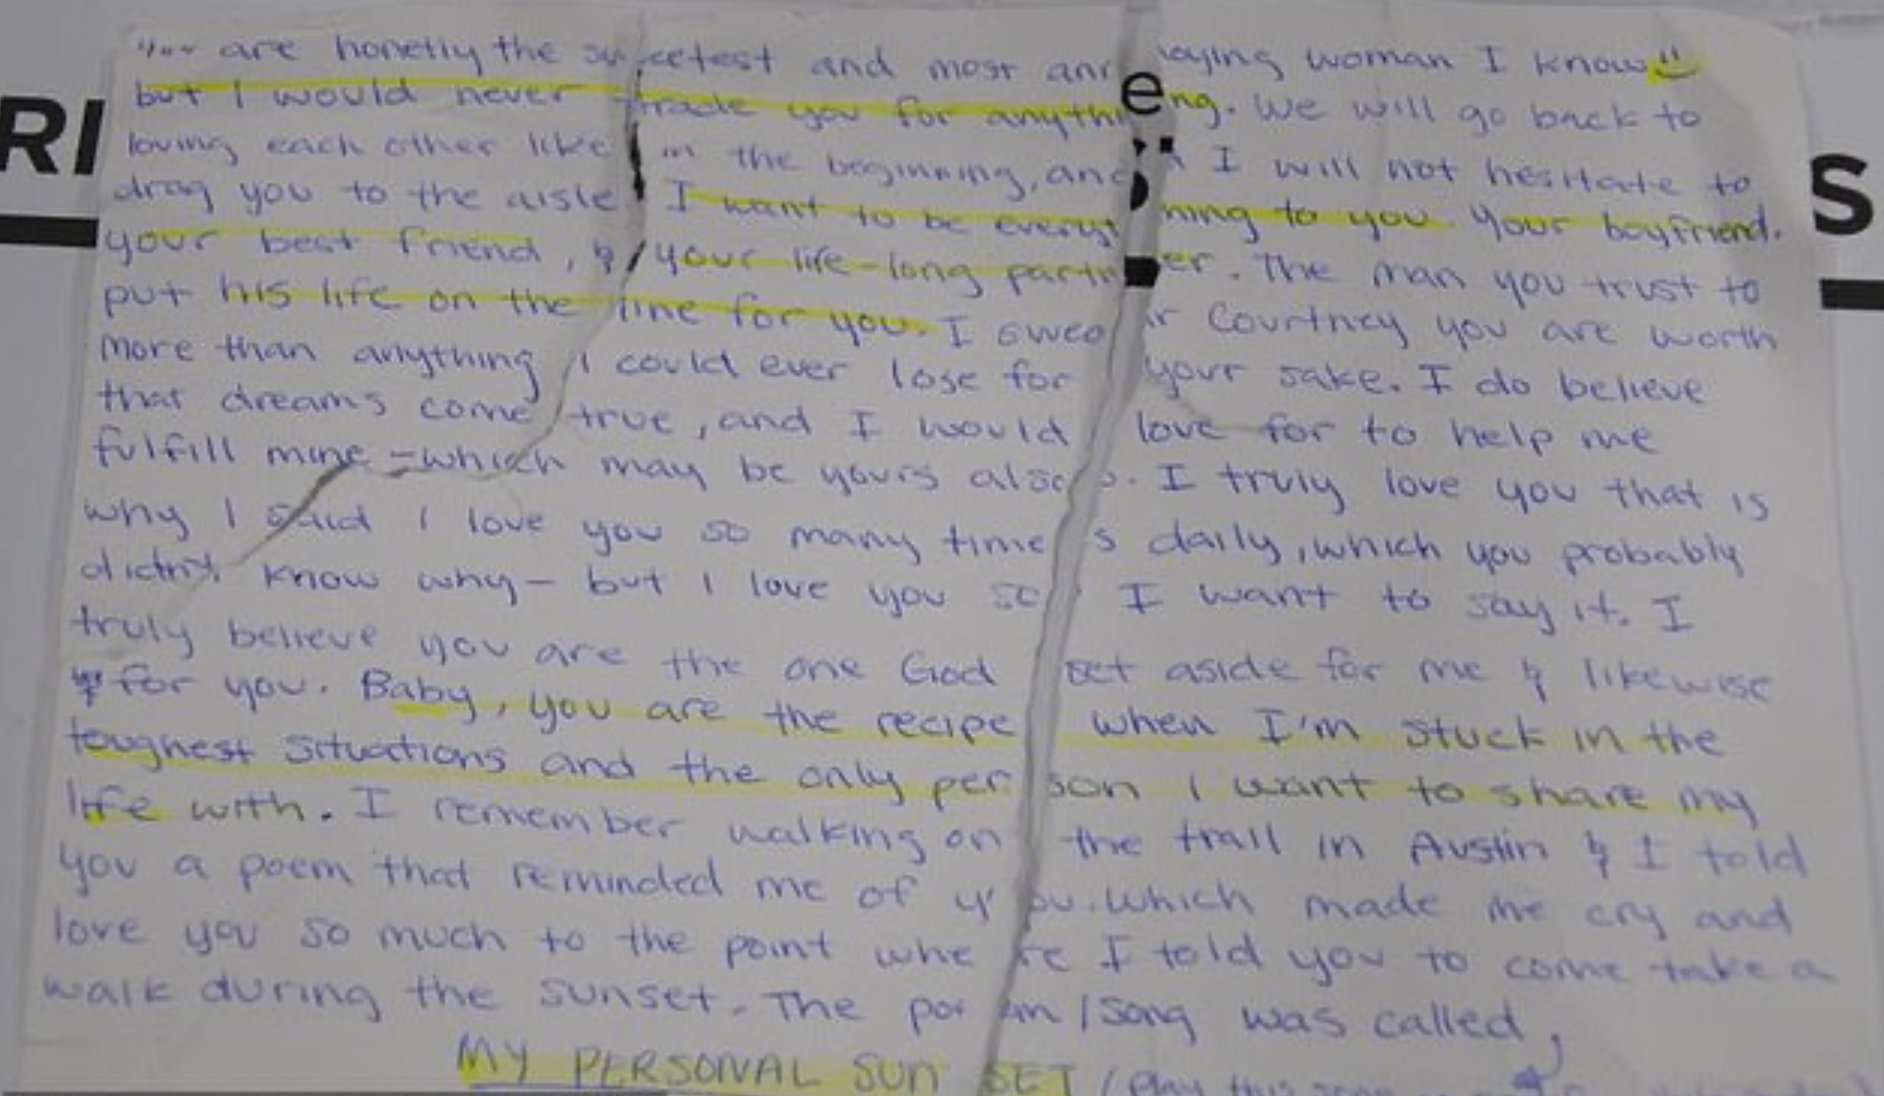 are honetly the sweetest and most annoying woman I know
but I would never trade you for anything. We will go back to
loving each other like in the beginning, and I will not hesitate to
drag you to the aisle. I want to be everything to you. Your boyfriend.
your best friend, & your life-long partner. The man you trust to
put his life on the line for you. I swear Courtney you are worth
more than anything I could ever lose for your sake. I do believe
that dreams come true, and I would love for to help me
fulfill mine - which may be yours also. I truly love you that is
why I said I love you so many times daily, which you probably
didn't know why - but I love you so I want to say it. I
truly believe you are the one God set aside for me & likewise
for you. Baby, you are the recipe when I'm stuck in the
toughest situations and the only person I want to share my
life with. I remember walking on the trail in Austin & I told
you a poem that reminded me of you. which made me cry and
love you so much to the point where I told you to come take a
walk during the sunset. The poem/song was called,
MY PERSONAL SUN SET (Play this
RI
e
S